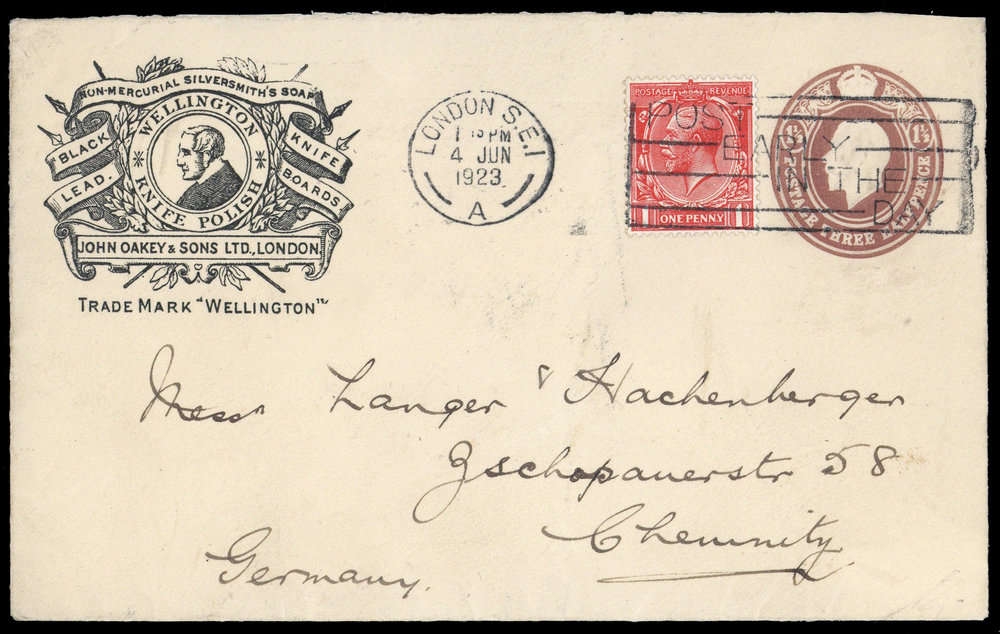 NON-MERCURIAL SILVERSMITH'S SOAP
WELLINGTON
KNIFE POLISH
BLACK
LEAD.
KNIFE
BOARDS
JOHN OAKEY & SONS LTD., LONDON
TRADE MARK "WELLINGTON"
LONDON S.E.1
1 15 PM
4 JUN
1923
A
POSTAGE REVENUE
1 ONE PENNY 1
POST
EARLY
IN THE
DAY
1½ 1½
THREE HALFPENCE
Messrs Langer & Hachenberger
Zschopauerstr 58
Chemnitz
Germany.